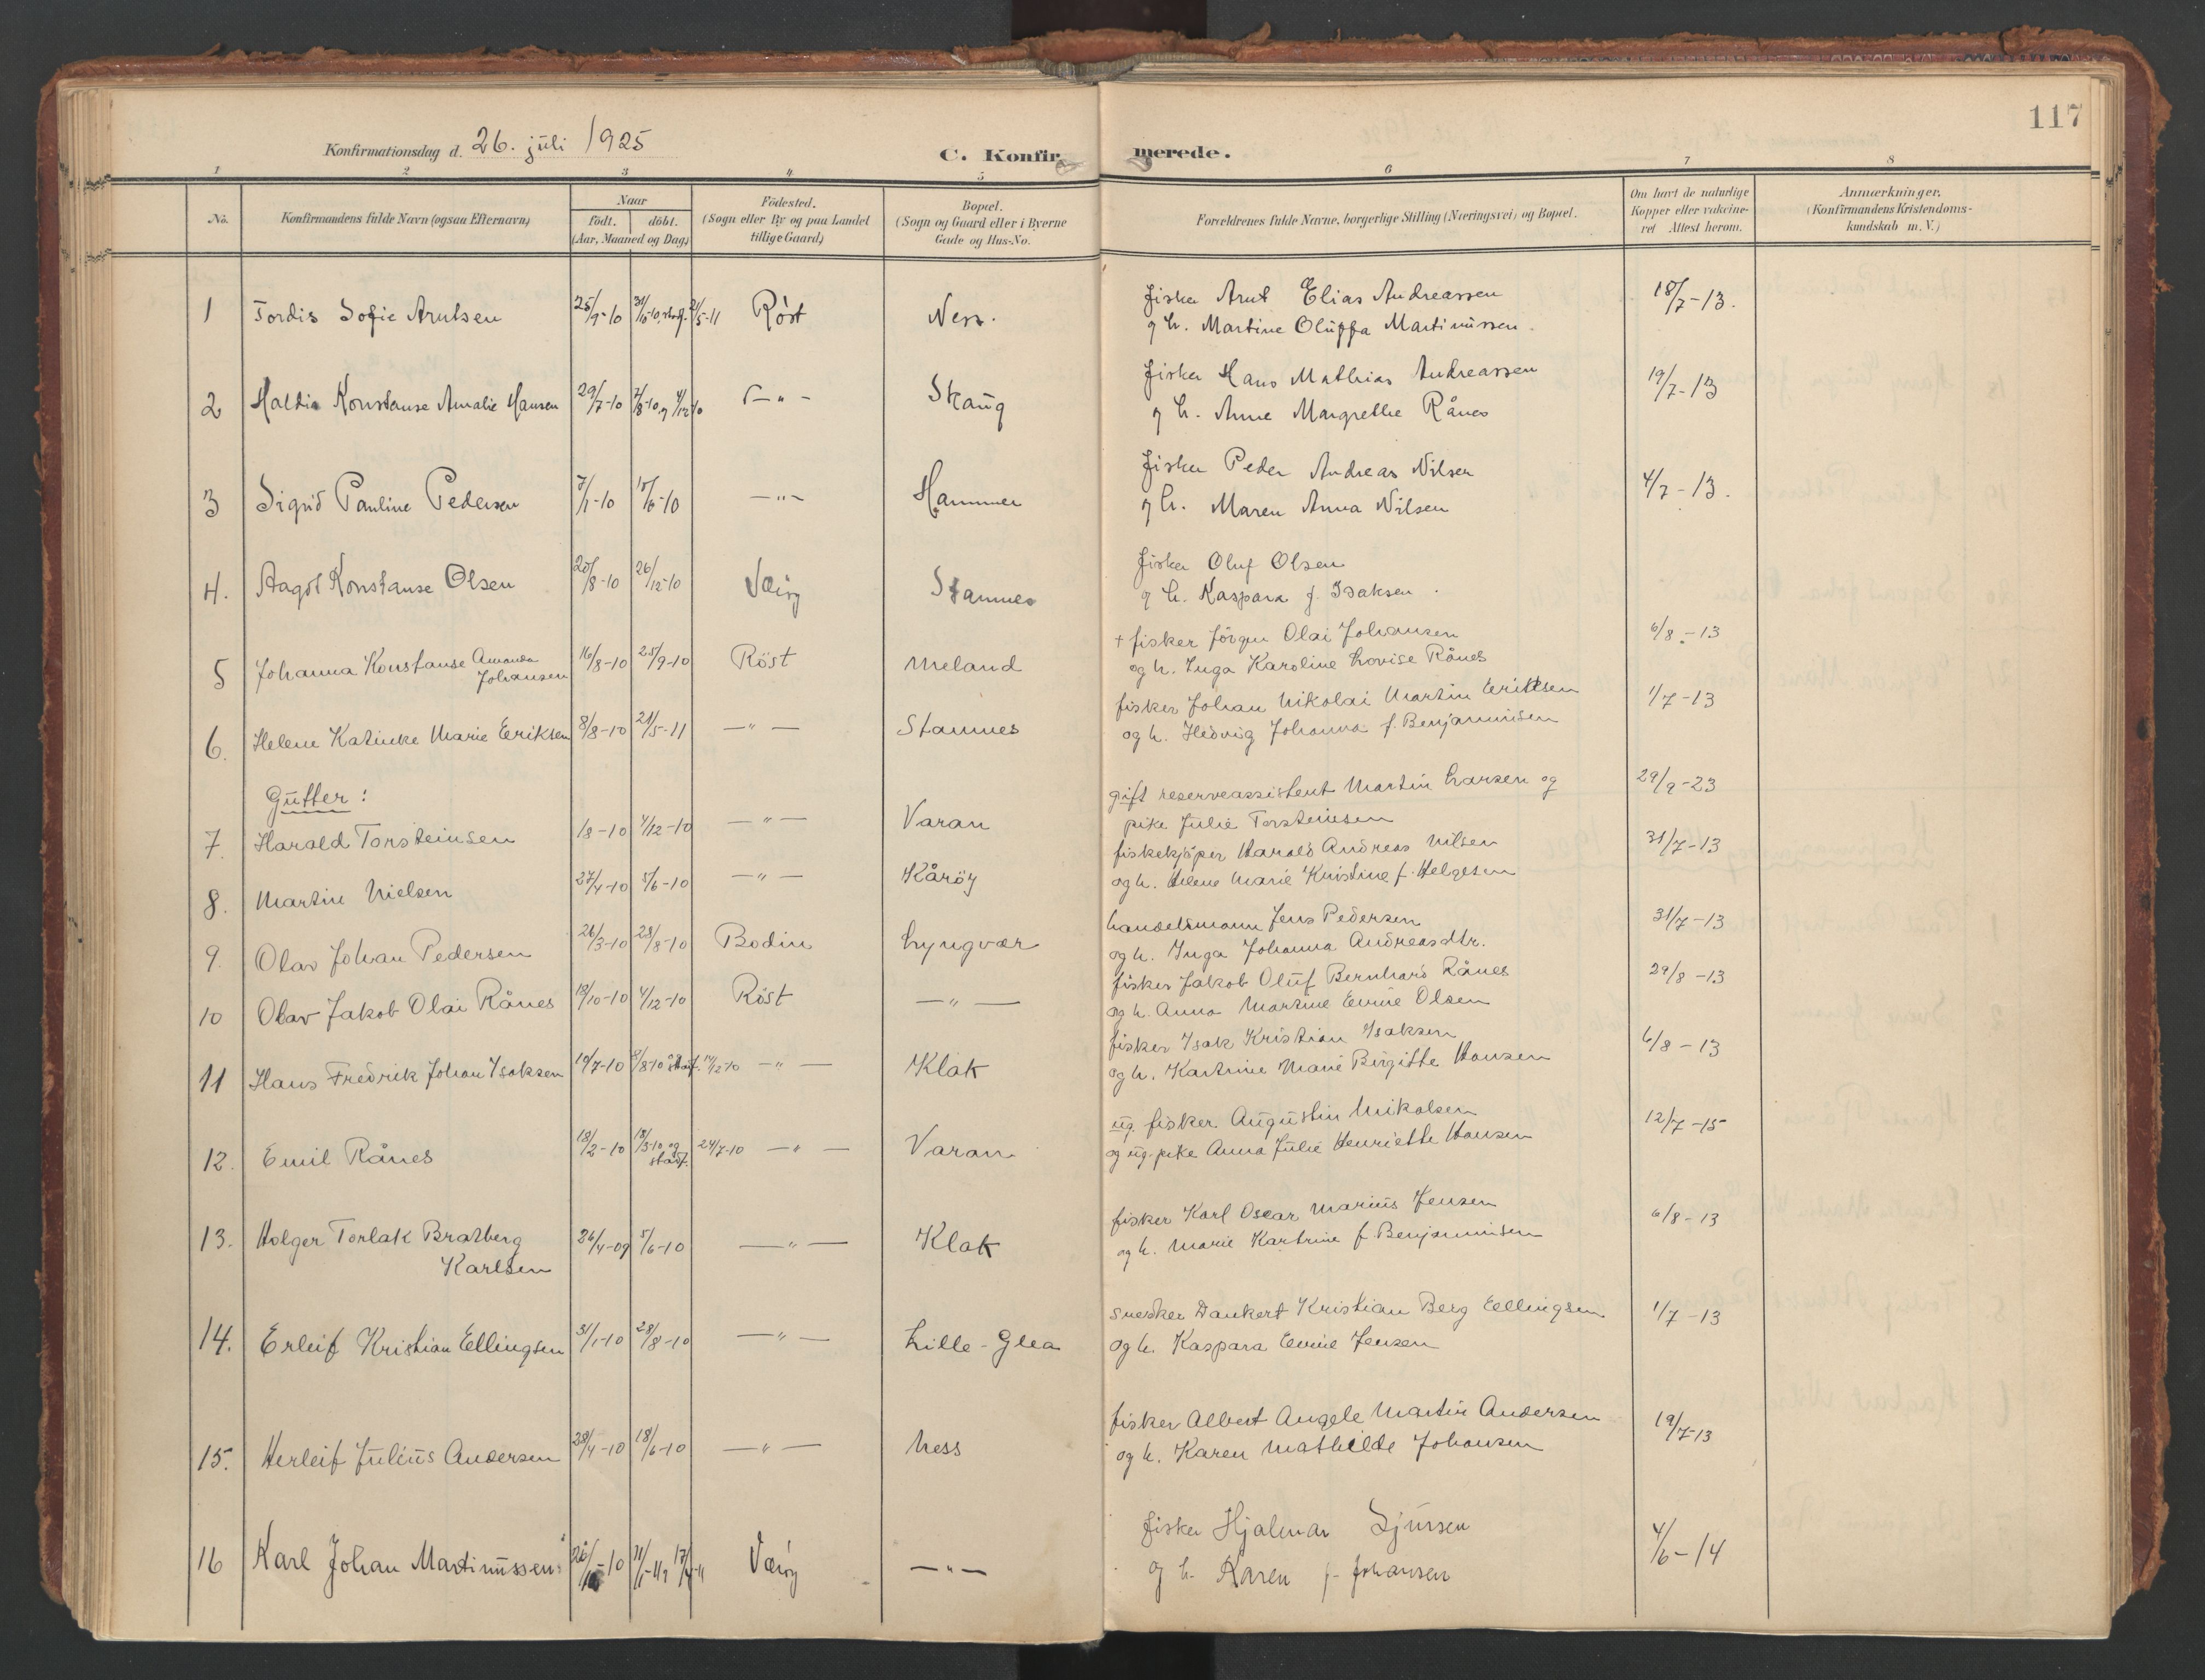 117
Konfirmationsdag d. 26. juli 1925
C. Konfirmerede.
1 2 3 4 5 6 7 8
No.
Konfirmandens fulde Navn (ogsaa Efternavn)
Naar
födt. döbt.
(Aar, Maaned og Dag)
Födested.
(Sogn eller By og paa Landet
tillige Gaard)
Bopæl.
(Sogn og Gaard eller i Byerne
Gade og Hus-No.
Forældrenes fulde Navne, borgerlige Stilling (Næringsvei) og Bopæl.
Om havt de naturlige
Kopper eller vakcine-
ret Attest herom.
Anmærkninger.
(Konfirmandens Kristendoms-
kundskab m. V.)
1 Tordis Sofie Arntsen 25/9-10 Röst Ness. fisker Arnt Elias Andreassen 18/7-13.
og h. Martine Oluffa Martinüssen.
2 Konstanse Amalie Hansen 29/7-10 7/8-10 og 4/12-10 -"- Skaug fisker Hans Mathias Andreassen 19/7-13
og h. Anne Margrethe Rånes
3 Sigrid Pauline Pedersen 7/1-10 /6-10 -"- Hammer fisker Peder Andreas Nilsen 4/7-13.
og h. Maren Anna Nilsen
4. Aagot Konstanse Olsen /8-10 26/12-10 Værøy Stamnes fisker Oluf Olsen
og h. Kaspara f. Isaksen.
5 Johanna Konstanse Amanda Johansen 16/8-10 25/9-10 Röst Meland + fisker Jörgen Olai Johansen 6/8-13
og h. Inga Karoline Lovise Rånes
6. Helene Katinke Marie Eriksen 8/8-10 21/5-11 -"- Stamnes fisker Johan Nikolai Martin Eriksen 1/7-13
og h. Hedvig Johanna f. Benjaminsen
Gütter:
7. Harald Torsteinsen 1/8-10 4/12-10 -"- Varan gift reserveassistent Martin Larsen og 29/9-23
pike Julie Torsteinsen
8. Martin Nielsen 27/4-10 5/6-10 -"- Kåröy fiskekjöper Harald Andreas Nilsen 31/7-13
og h. Helene Marie Kristine f. Helgesen
9. Olav Johan Pedersen 26/3-10 28/8-10 Bodin Lyngvær handelsmann Jens Pedersen 31/7-13
og h. Inga Johanna Andreasdtr.
10 Olav Jakob Olai Rånes 18/10-10 4/12-10 Röst -"- fisker Jakob Olüf Bernhard Rånes 29/8-13
og h. Anna Martine Emine Olsen
11 Hans Fredrik Johan Isaksen 19/7-10 8/8-10 -"- Klak fisker Isak Kristian Isaksen 6/8-13
og h. Kartrine Marie Birgitte Hansen
12. Emil Rånes 18/2-10 18/3-10 og stadf. 24/7-10 -"- Varan ug. fisker Augüstin Nikolsen 12/7-15
og üg. pike Anna Julie Henriette Hansen
13. Holger Torlak Bratberg Karlsen 26/4-09 5/6-10 -"- Klak fisker Karl Oscar Mariüs Jensen 6/8-13
og h. Marie Kartrine f. Benjaminsen
14. Erleif Kristian Ellingsen 31/1-10 28/8-10 -"- Lille-Glea snekker Dankert Kristian Berg Ellingsen 1/7-13
og h. Kaspara Emine Jensen
15. Herleif Juliüs Andersen 28/4-10 18/6-10 -"- Ness fisker Albert Angele Martin Andersen 19/7-13
og h. Karen Mathilde Johansen
16 Karl Johan Martinüssen Værøy -"- fisker Hjalmar Sjursen 4/6-14
og h. Karen f. Johansen